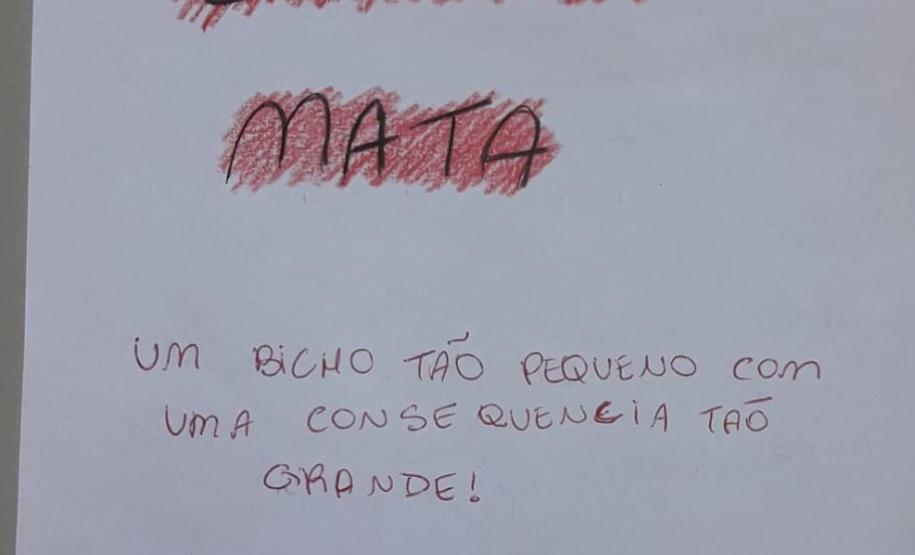 MATA
UM BICHO TÃO PEQUENO COM
UMA CONSEQUENCIA TAÕ
GRANDE!